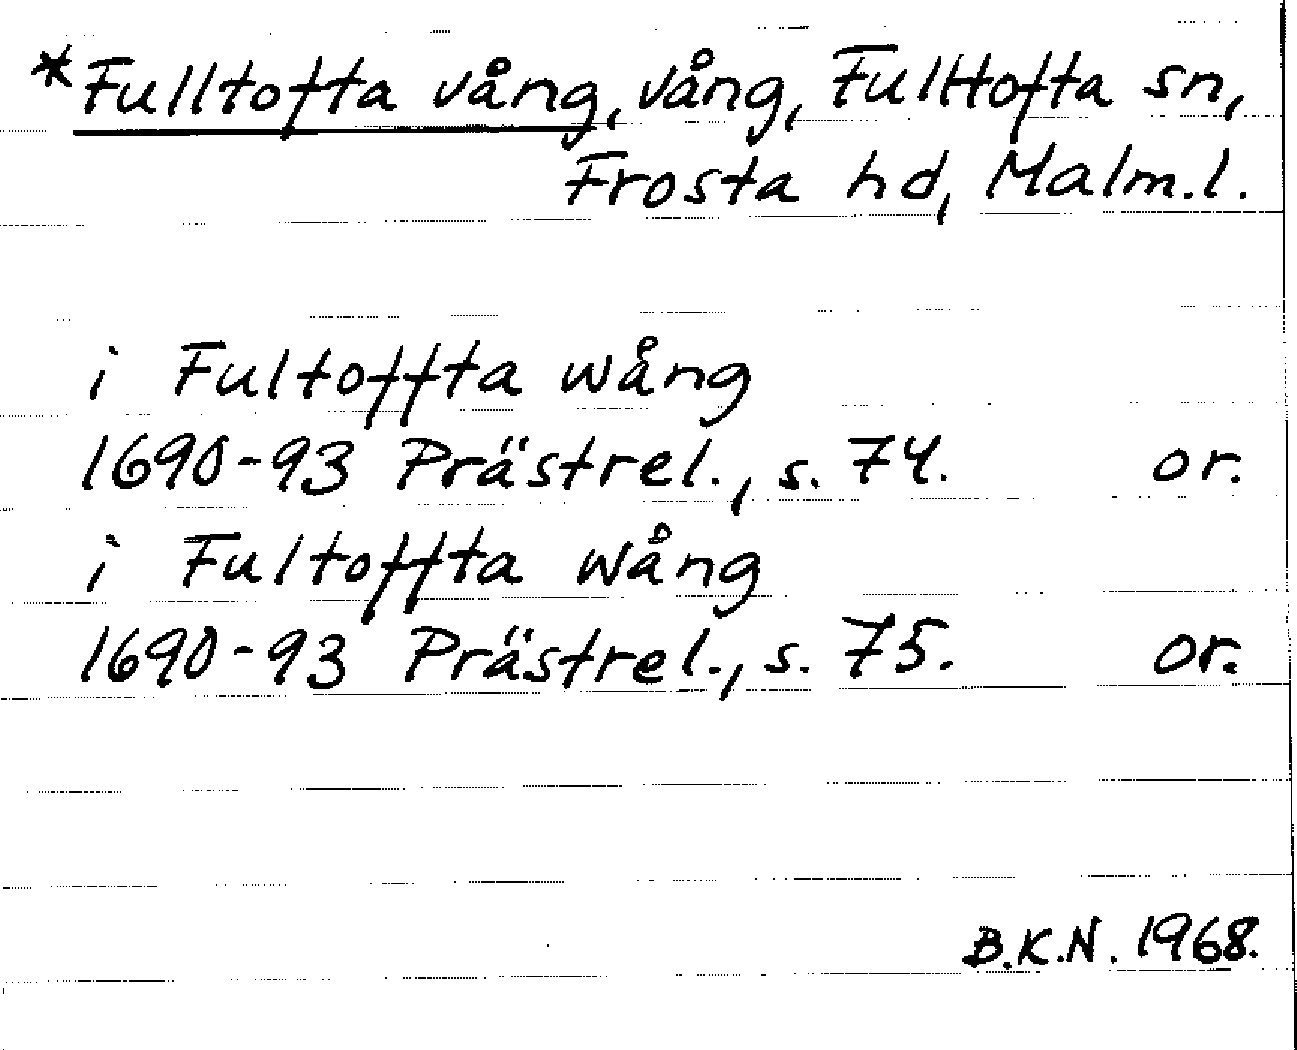 *Fulltofta vång, vång, Fulltofta sn,
Frosta hd, Malm.l.
i Fultoffta wång
1690-93 Prästrel., s. 74. or.
i Fultoffta wång
1690-93 Prästrel., s. 75. or.
B.K.N. 1968.